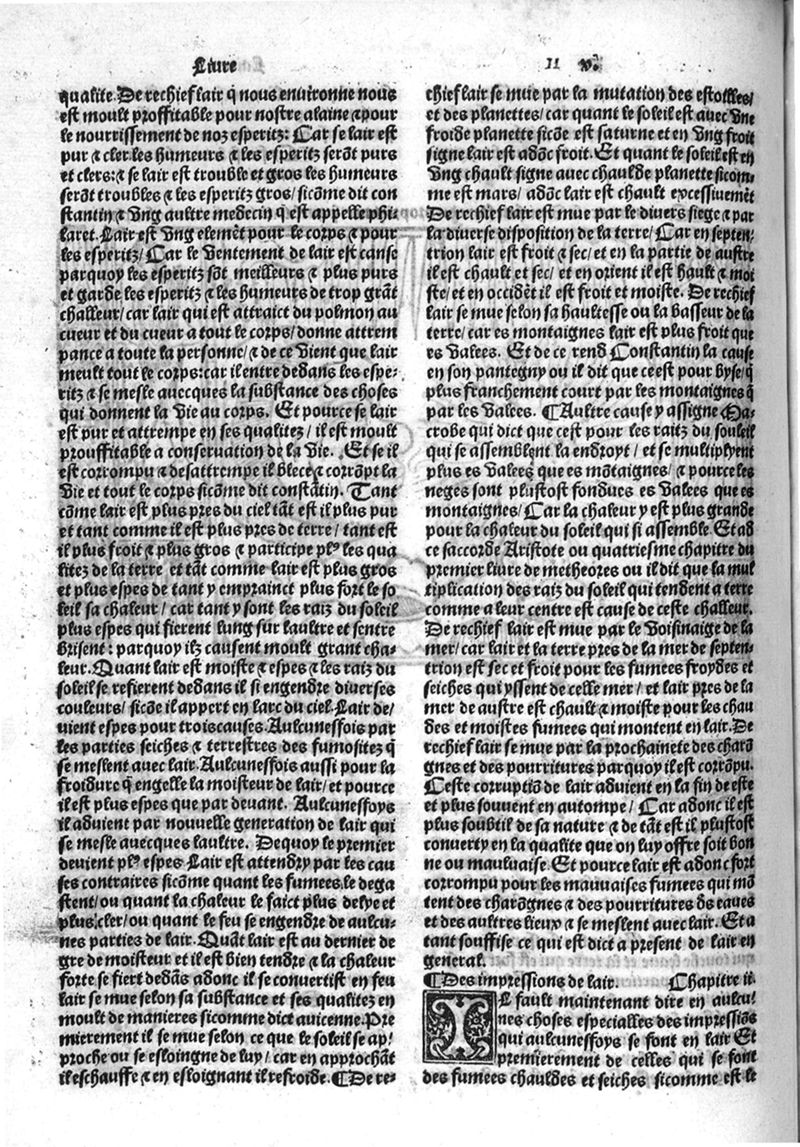 Liure 11 v.
qualite. De rechief lair q̃ nous enuironne nous
est moult proffitable pour nostre alaine ⁊ pour
le nourrissement de noz esperitz: Car se lair est
pur ⁊ cler les humeurs ⁊ les esperitz serõt purs
et clers: ⁊ se lair est trouble et gros les humeurs
serõt troubles ⁊ les esperitz gros/ sicõme dit con
stantin ⁊ vng aultre medecin q̃ est appelle phi-
laret. Lair est vng elemẽt pour le corps ⁊ pour
les esperitz/ Car le ventement de lair est cause
parquoy les esperitz sõt meilleurs ⁊ plus purs
et garde les esperitz ⁊ les humeurs de trop grãt
challeur/ car lair qui est attraict du polmon au
cueur et du cueur a tout le corps/ donne attrem
pance a toute la personne/ ⁊ de ce vient que lair
meult tout le corps: car il entre dedans les espe-
ritz ⁊ se mesle auecques la substance des choses
qui donnent la vie au corps. Et pource se lair
est pur et attrempe en ses qualitez/ il est moult
prouffitable a conseruation de la vie. Et se il
est corrompu ⁊ desattrempe il blece ⁊ corrõpt la
vie et tout le corps sicõme dit constãtin. Tant
cõme lair est plus pres du ciel tãt est il plus pur
et tant comme il est plus pres de terre/ tant est
il plus froit ⁊ plus gros ⁊ participe plꝰ les qua
litez de la terre et tãt comme lair est plus gros
et plus espes de tant y emprainct plus fort le so
leil sa chaleur/ car tant y sont les raiz du soleil
plus espes qui fierent lung sur laultre et sentre
brisent: parquoy ilz causent moult grant cha-
leur. Quant lair est moiste ⁊ espes ⁊ les raiz du
soleil se refierent dedans il si engendre diuerses
couleurs/ sicõe il appert en larc du ciel. Lair de/
uient espes pour trois causes. Aulcunesfois par
les parties seiches ⁊ terrestres des fumositez q̃
se meslent auec lair. Aulcunesfois aussi pour la
froidure q̃ engelle la moisteur de lair/ et pource
il est plus espes que par deuant. Aulcunesfoys
il aduient par nouuelle generation de lair qui
se mesle auecques laultre. De quoy le premier
deuient plꝰ espes Lair est attendry par les cau
ses contraires sicõme quant les fumees le dega
stent/ ou quant la chaleur le faict plus delye et
plus cler/ ou quant le feu se engendre de aulcu-
nes parties de lair. Quãt lair est au dernier de
gre de moisteur et il est bien tendre ⁊ la chaleur
forte se fiert dedãs adonc il se conuertist en feu
lair se mue selon sa substance et ses qualitez en
moult de manieres sicomme dict auicenne. Pre
mierement il se mue selon ce que le soleil se ap/
proche ou se esloingne de luy/ car en approchãt
il eschauffe ⁊ en esloignant il refroide. ¶De re-
chief lair se mue par la mutation des estoilles/
et des planettes/ car quant le soleil est auec vne
froide planette sicõe est saturne et en vng froit
signe lair est adõc froit. Et quant le soleil est en
vng chault signe auec chaulde planette sicom-
me est mars/ adõc lair est chault excessiuemẽt
De rechief lair est mue par le diuers siege ⁊ par
la diuerse disposition de la terre/ Car en septen-
trion lair est froit ⁊ sec/ et en la partie de austre
il est chault et sec/ et en orient il est hault ⁊ moi
ste/ et en occidẽt il est froit et moiste. De rechief
lair se mue selon sa haultesse ou la basseur de la
terre/ car es montaignes lair est plus froit que
es valees. Et de ce rend Constantin la cause
en son pantegny ou il dit que ce est pour byse/ q̃
plus franchement court par les montaignes q̃
par les valees. ¶Aultre cause y assigne Ma-
crobe qui dict que cest pour les raitz du souleil
qui se assemblent la endroyt/ et se multiplyent
plus es valees que es mõtaignes/ ⁊ pource les
neges sont plustost fondues es valees que es
montaignes/ Car la chaleur y est plus grande
pour la chaleur du soleil qui si assemble. Et ad
ce saccorde Aristote ou quatriesme chapitre du
premier liure de metheores ou il dit que la mul
tiplication des raiz du soleil qui tendent a terre
comme a leur centre est cause de ceste challeur.
De rechief lair est mue par le voisinaige de la
mer/ car lair et la terre pres de la mer de septen-
trion est sec et froit pour les fumees froydes et
seiches qui yssent de celle mer/ et lair pres de la
mer de austre est chault ⁊ moiste pour les chau
des et moistes fumees qui montent en lair. De
rechief lair se mue par la prochainete des charõ
gnes et des pourritures parquoy il est corrõpu.
Ceste corruptiõ de lair aduient en la fin de este
et plus souuent en autompe/ Car adonc il est
plus soubtil de sa nature ⁊ de tãt est il plustost
conuerty en la qualite que on luy offre soit bon
ne ou mauluaise. Et pource lair est adonc fort
corrompu pour les mauuaises fumees qui mõ
tent des charõgnes ⁊ des pourritures ds eaues
et des aultres lieux ⁊ se meslent auec lair. Et a
tant souffise ce qui est dict a present de lair en
general.
¶Des impressions de lair. Chapitre ii.
IL fault maintenant dire en aulcu-
nes choses especialles des impressiõs
qui aulcunesfoys se font en lair Et
premierement de celles qui se font
des fumees chauldes et seiches sicomme est le